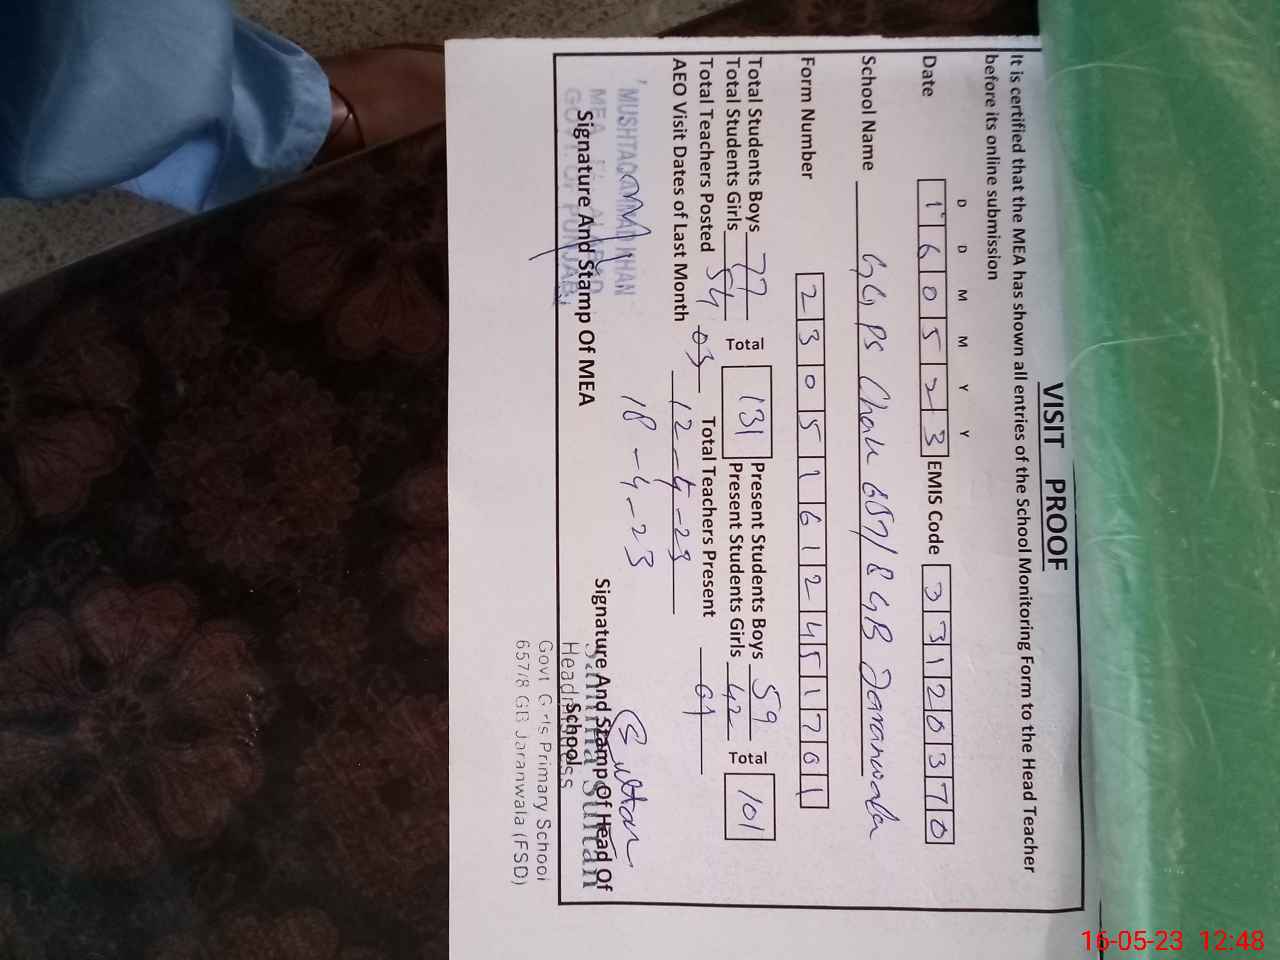 VISIT PROOF
It is certified that the MEA has shown all entries of the School Monitoring Form to the Head Teacher
before its online submission
D D M M Y Y
Date 1 6 0 5 2 3 EMIS Code 3 3 1 2 0 3 7 0
School Name GGPS Chak 657/8 GB Jaranwala
Form Number 2 3 0 5 1 6 1 2 4 5 1 7 0 1
Total Students Boys 77 Total 131 Present Students Boys 59 Total 101
Total Students Girls 54 Present Students Girls 42
Total Teachers Posted 03 Total Teachers Present
AEO Visit Dates of Last Month 12-4-23
18-4-23
KHAN
MEA
GOVT. OF PUNJAB.
Signature And Stamp Of MEA
Sultan
Signature And Stamp Of Head Of
School
Sultan
Headmistress
Govt Girls Primary School
657/8 GB Jaranwala (FSD)
16-05-23 12:48